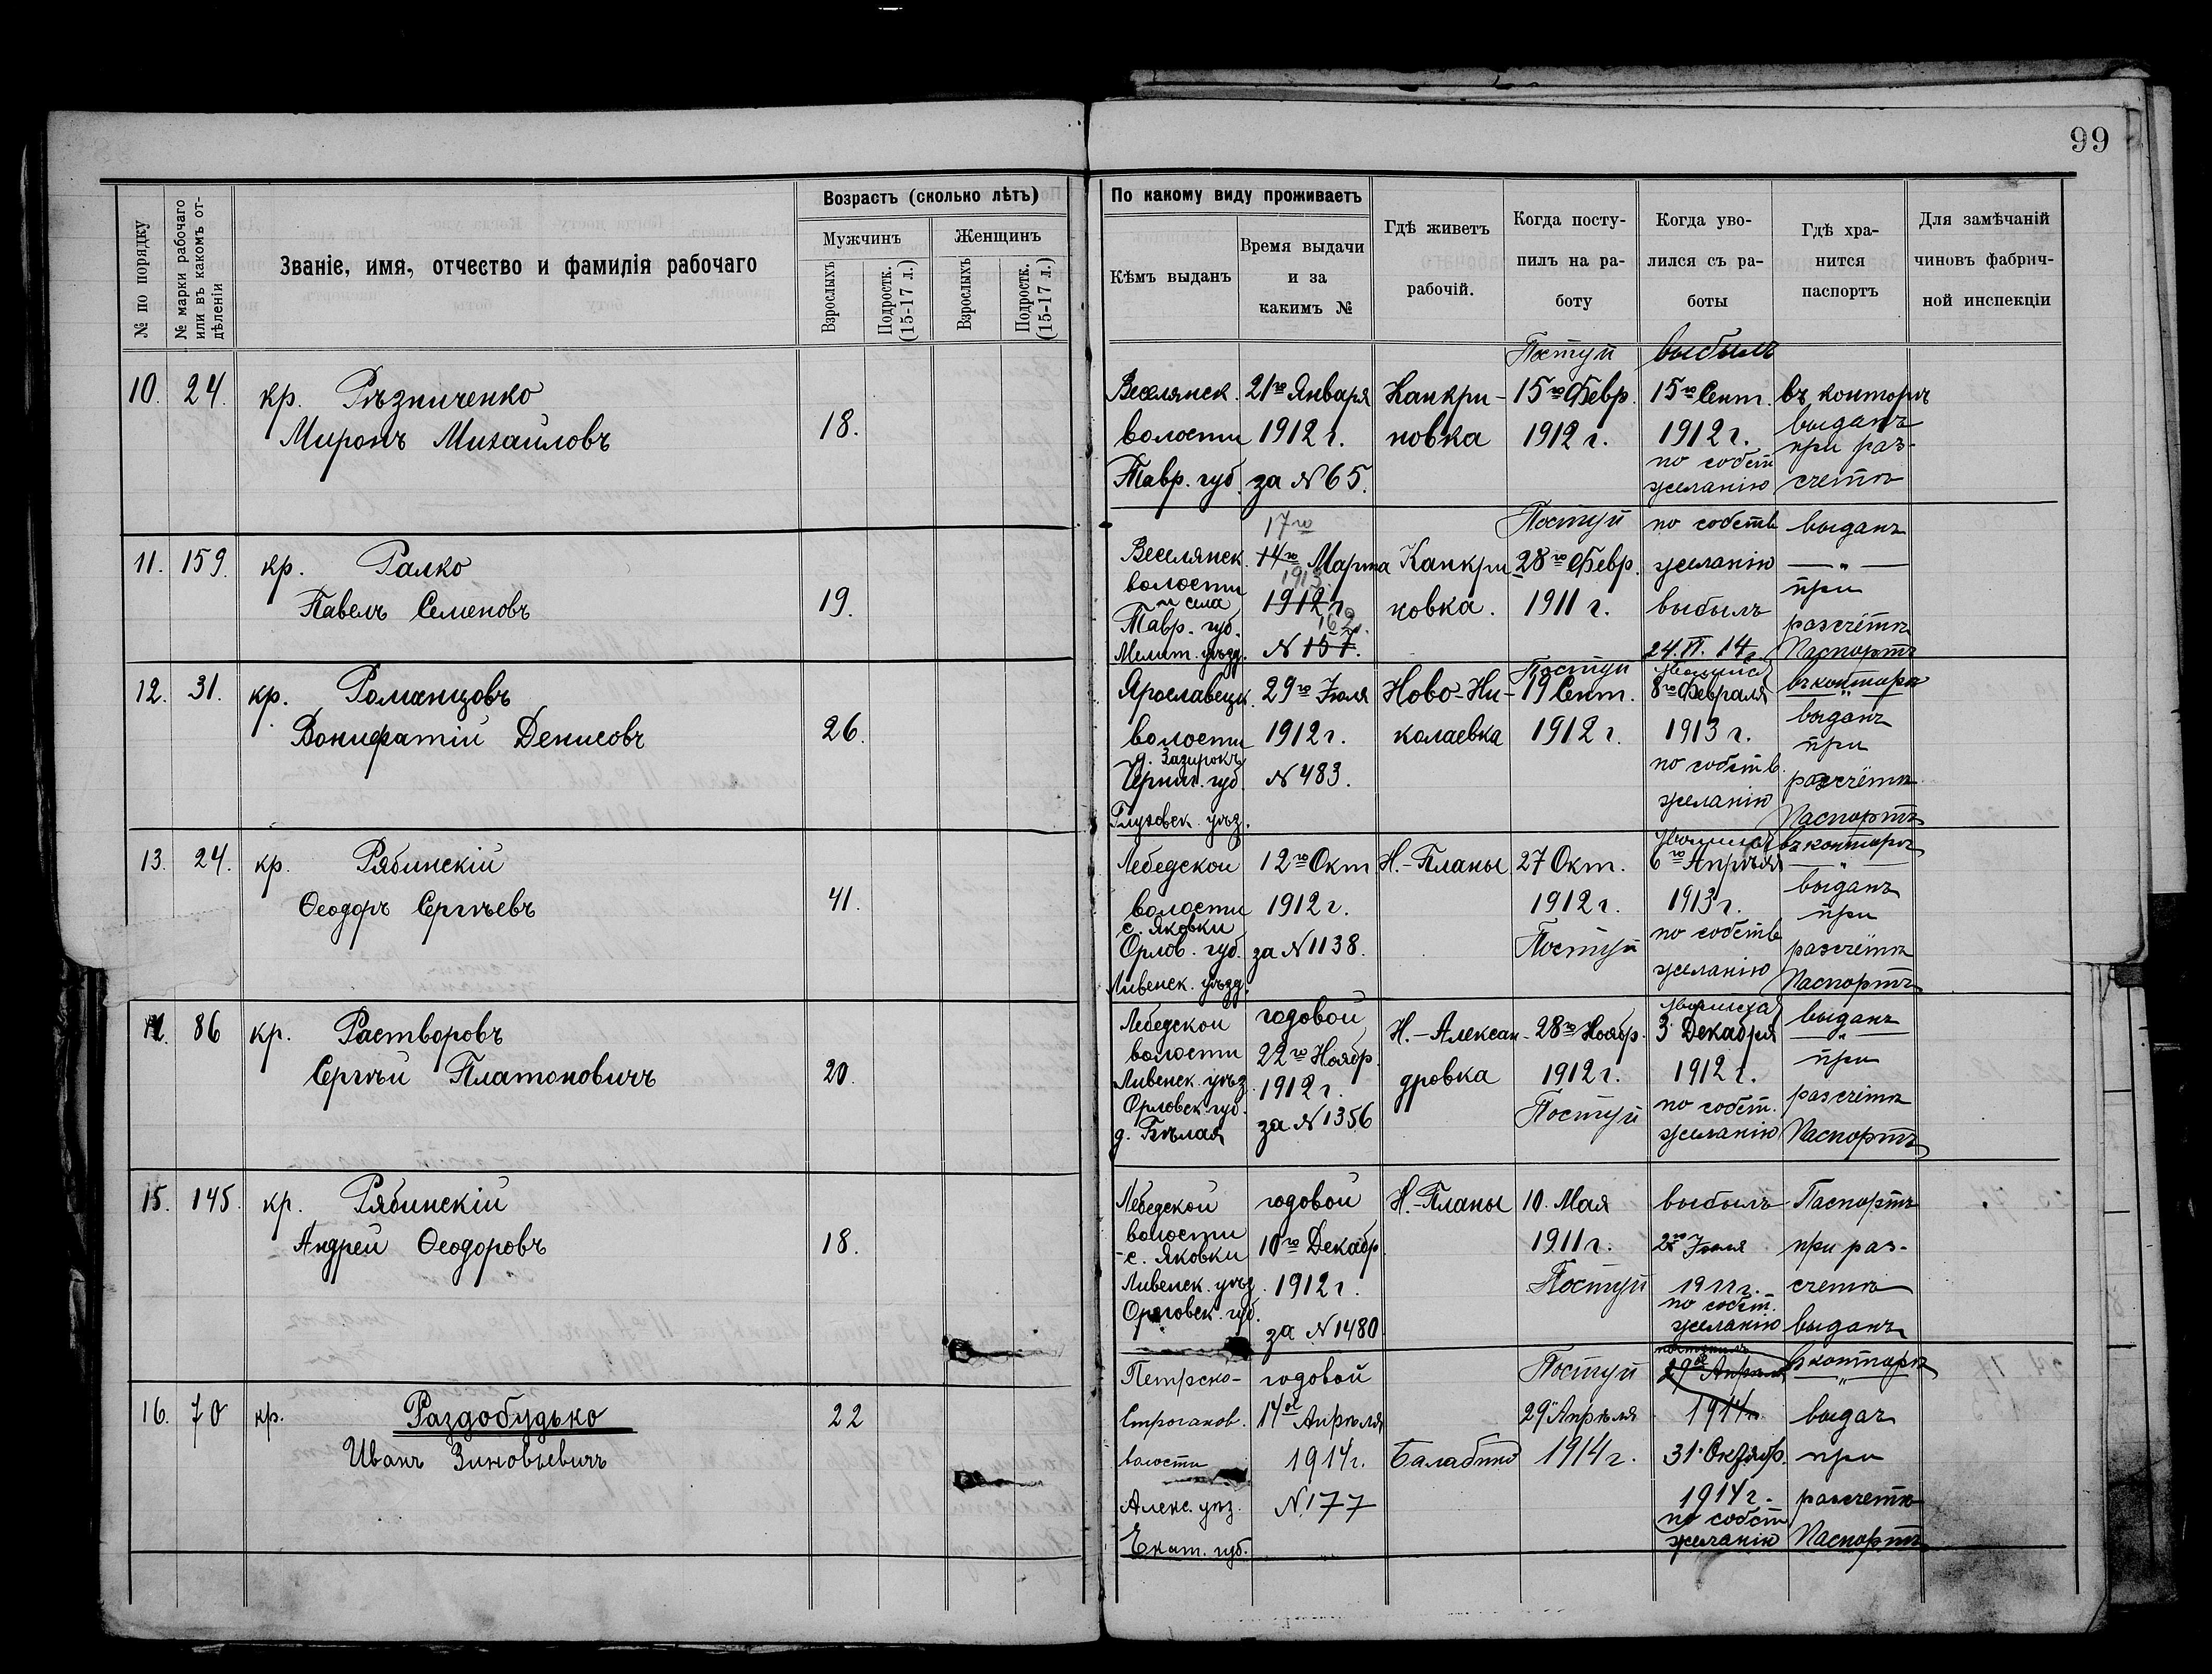 99
№ по порядку
№ марки рабочаго или въ какомъ отдѣленіи
Званіе, имя, отчество и фамилія рабочаго
Возрастъ (сколько лѣтъ)
Мужчинъ
Женщинъ
Взрослыхъ
Подростк. (15-17 л.)
Взрослыхъ
Подростк. (15-17 л.)
По какому виду проживаетъ
Кѣмъ выданъ
Время выдачи
и за
какимъ №
Гдѣ живетъ
рабочій.
Когда посту-
пилъ на ра-
боту
Когда уво-
лился съ ра-
боты
Гдѣ хра-
нится
паспортъ
Для замѣчаній
чиновъ фабрич-
ной инспекціи
10. 24. кр. Рѣзниченко
Миронъ Михайловъ
18.
Веселянск.
волости
Тавр. губ.
21го Января
1912 г.
за N 65.
Канкри-
новка
Поступ
15го Февр.
1912 г.
выбылъ
15го Сент.
1912 г.
по собст
желанію
въ конторѣ
выданъ
при раз-
счетѣ
11. 159. кр. Ралко
Павелъ Семеновъ
19.
Веселянск.
волости
села
Тавр. губ.
Мелит. уѣзд.
17го
14го Марта
1913
1912 г.
162.
N 157.
Канкри
новка.
Поступ
28го Февр.
1911 г.
по собств
желанію
выбылъ
24. VI. 14 г.
выданъ
— " —
при
разсчётѣ
Паспортъ
12. 31. кр. Романцовъ
Вонифатій Денисовъ
26.
Ярославецк.
волости
д. Зазирокъ
Черниг. губ.
Глуховск. уѣз.
29го Іюля
1912 г.
N 483.
Ново-Ни-
колаевка
Поступ
19 Сент.
1912 г.
8го Февраля
1913 г.
по собств.
желанію
въ конторѣ
"
выданъ
при
разсчётѣ
Паспортъ
13. 24. кр. Рябинскій
Ѳеодоръ Сергѣевъ
41.
Лебедской
волости
с. Яковки
Орлов. губ.
Ливенск. уѣзд.
12го Окт
1912 г.
за N 1138.
Н.-Планы
27 Окт.
1912 г.
Поступ
6го Апрѣля
1913 г.
по собств
желанію
въ конторѣ
— " —
выданъ
при
разсчётѣ
Паспортъ
86 кр. Растворовъ
Сергѣй Платоновичъ
20.
Лебедской
волости
Ливенск. уѣз.
Орловск. губ.
д. Бѣлая
годовой
22го Ноябр.
1912 г.
за N 1356
Н.-Алексан-
дровка
28го Ноябр.
1912 г.
Поступ
3 Декабря
1912 г.
по собст.
желанію
выданъ
— " —
при
разсчётѣ
Паспортъ
15. 145. кр. Рябинскій
Андрей Ѳеодоровъ
18.
Лебедской
волости
с. Яковки
Ливенск. уѣз.
Орловск. губ.
годовой
10го Декабр.
1912 г.
за N 1480
Н.-Планы
10. Мая
1911 г.
Поступ
выбылъ
2го Іюля
по собст.
желанію
Паспортъ
при раз-
счетѣ
выданъ
16. 70 кр. Раздобудько
Иванъ Зиновьевичъ
22
Петрско-
Строганов.
волости
Алекс. уѣз.
Екат. губ.
годовой
14ое Апрѣля
1914 г.
N 177
Балабино
Поступ
29 Апрѣля
1914 г.
29ое Апрѣля
1914 г.
31. Октябр.
1914 г.
по собст
желанію
в конторѣ
"
выдан
при
разсчетѣ
Паспортъ